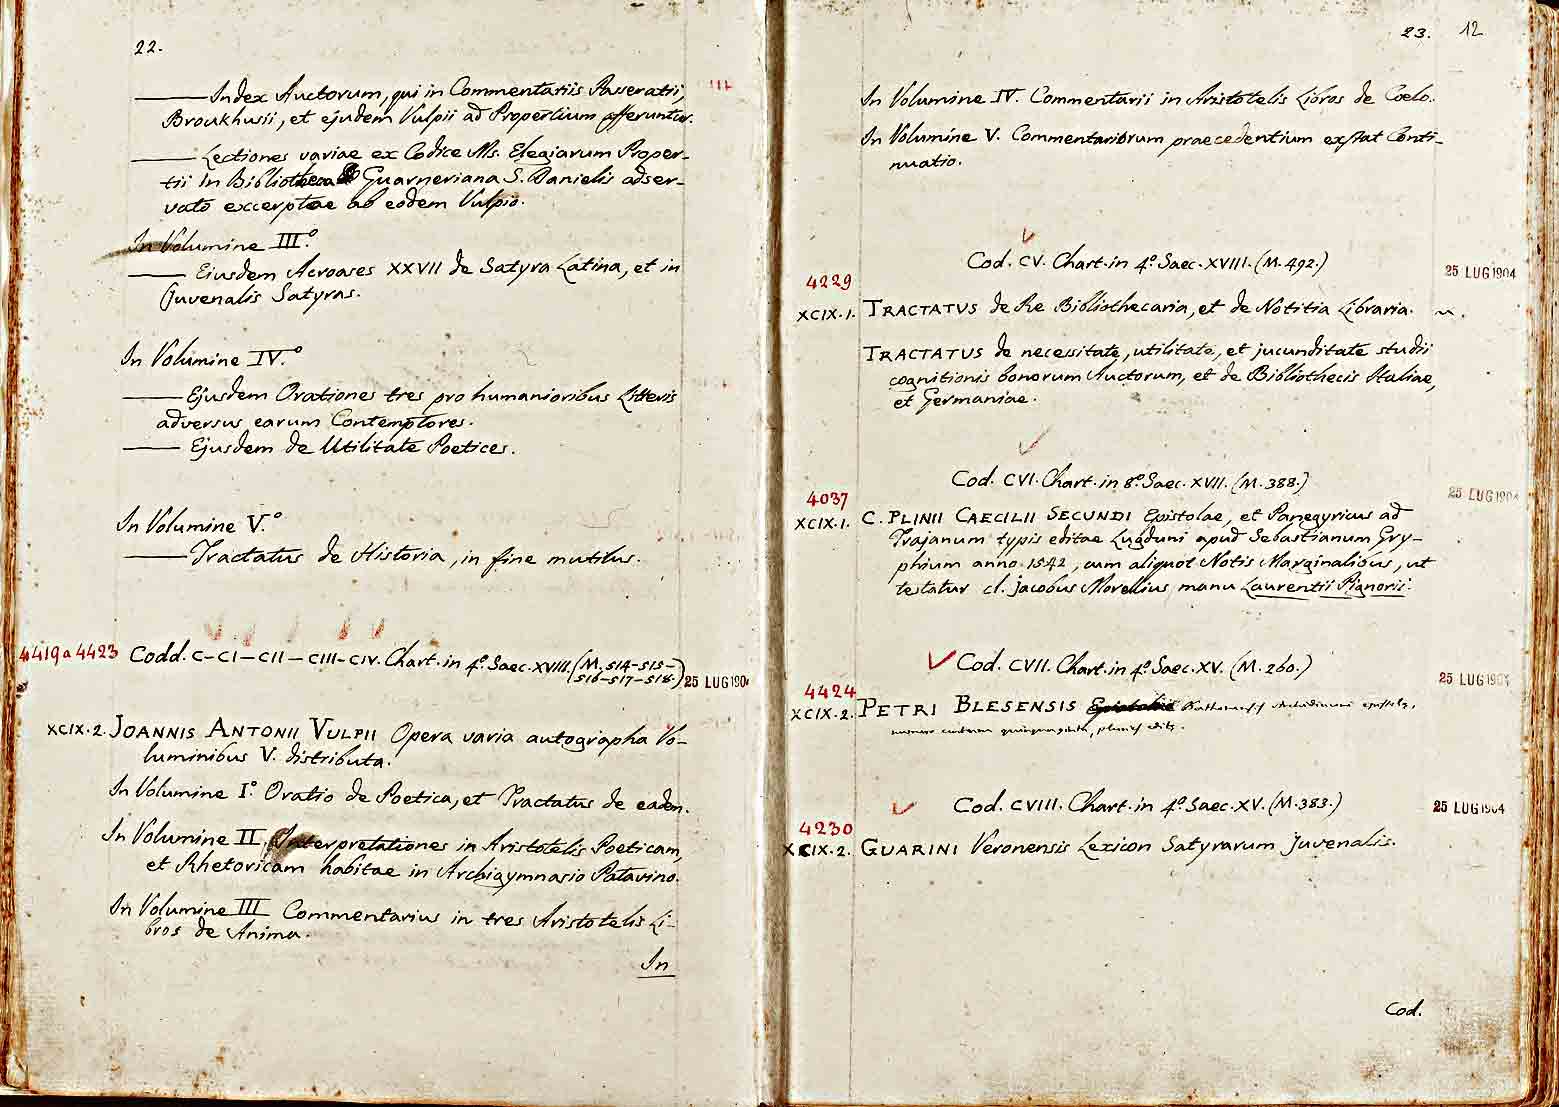 22.
——— Index Auctorum, qui in Commentariis Passeratii,
Broukhusii, et ejusdem Vulpii ad Propertium afferuntur.
——— Lectiones variae ex Codice Ms. Elegiarum Proper-
tii In Bibliotheca Guarneriana S. Danielis adser-
vato excerptae ab eodem Vulpio.
In Volumine III.º
——— Eiusdem Acroases XXVII de Satyra Latina, et in
Juvenalis Satyras.
In Volumine IV.º
——— Ejusdem Orationes tres pro humanioribus Litteris
adversus earum Contemptores.
——— Ejusdem de Utilitate Poetices.
In Volumine V.º
——— Tractatus de Historia, in fine mutilus.
4419 a 4423 Codd. C–CI–CII–CIII–CIV. Chart. in 4.º Saec. XVIII. (M. 514–515–
516–517–518.) 25 LUG 190
XCIX.2. JOANNIS ANTONII VULPII Opera varia autographa Vo-
luminibus V. distributa.
In Volumine I.º Oratio de Poetica, et Tractatus de eadem.
In Volumine II. Interpretationes in Aristotelis Poeticam,
et Rhetoricam habitae in Archigymnasio Patavino.
In Volumine III Commentarius in tres Aristotelis Li-
bros de Anima.
In
23. 12
In Volumine IV. Commentarii in Aristotelis Libros de Coelo.
In Volumine V. Commentariorum praecedentium exstat Conti-
nuatio.
Cod. CV. Chart. in 4.º Saec. XVIII. (M. 492.)
4229 25 LUG 1904
XCIX.1. TRACTATUS de Re Bibliothecaria, et de Notitia Libraria.
TRACTATUS de necessitate, utilitate, et jucunditate studii
cognitionis bonorum Auctorum, et de Bibliothecis Italiae,
et Germaniae.
Cod. CVI. Chart. in 8.º Saec. XVII. (M. 388.)
4037 25 LUG 1904
XCIX.1. C. PLINII CAECILII SECUNDI Epistolae, et Panegyricus ad
Trajanum typis editae Lugduni apud Sebastianum Gry-
phium anno 1542, cum aliquot Notis Marginalibus, ut
testatur cl. Jacobus Morellius manu Laurentii Pignorii.
Cod. CVII. Chart. in 4.º Saec. XV. (M. 260.)
4424 25 LUG 1904
XCIX.2. PETRI BLESENSIS Epistolae
Cod. CVIII. Chart. in 4.º Saec. XV. (M. 383.) 25 LUG 1904
4230
XCIX.2. GUARINI Veronensis Lexicon Satyrarum Juvenalis.
Cod.